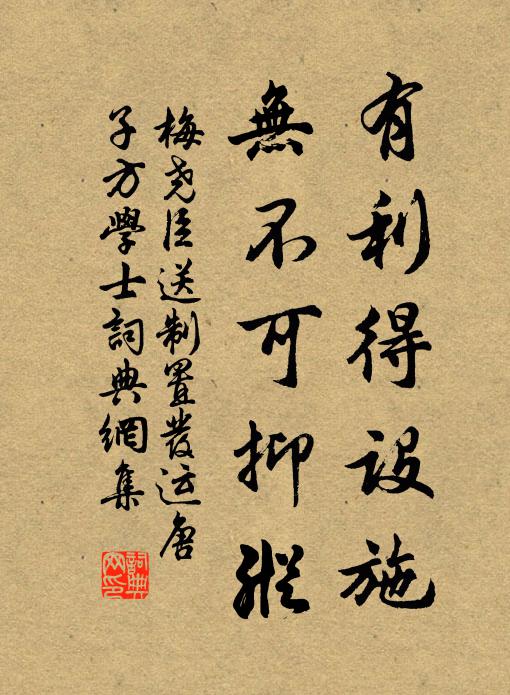 有利得設施
無不可抑縱
梅堯臣送制置發運唐
子方學士詞典網集
詞典
網印